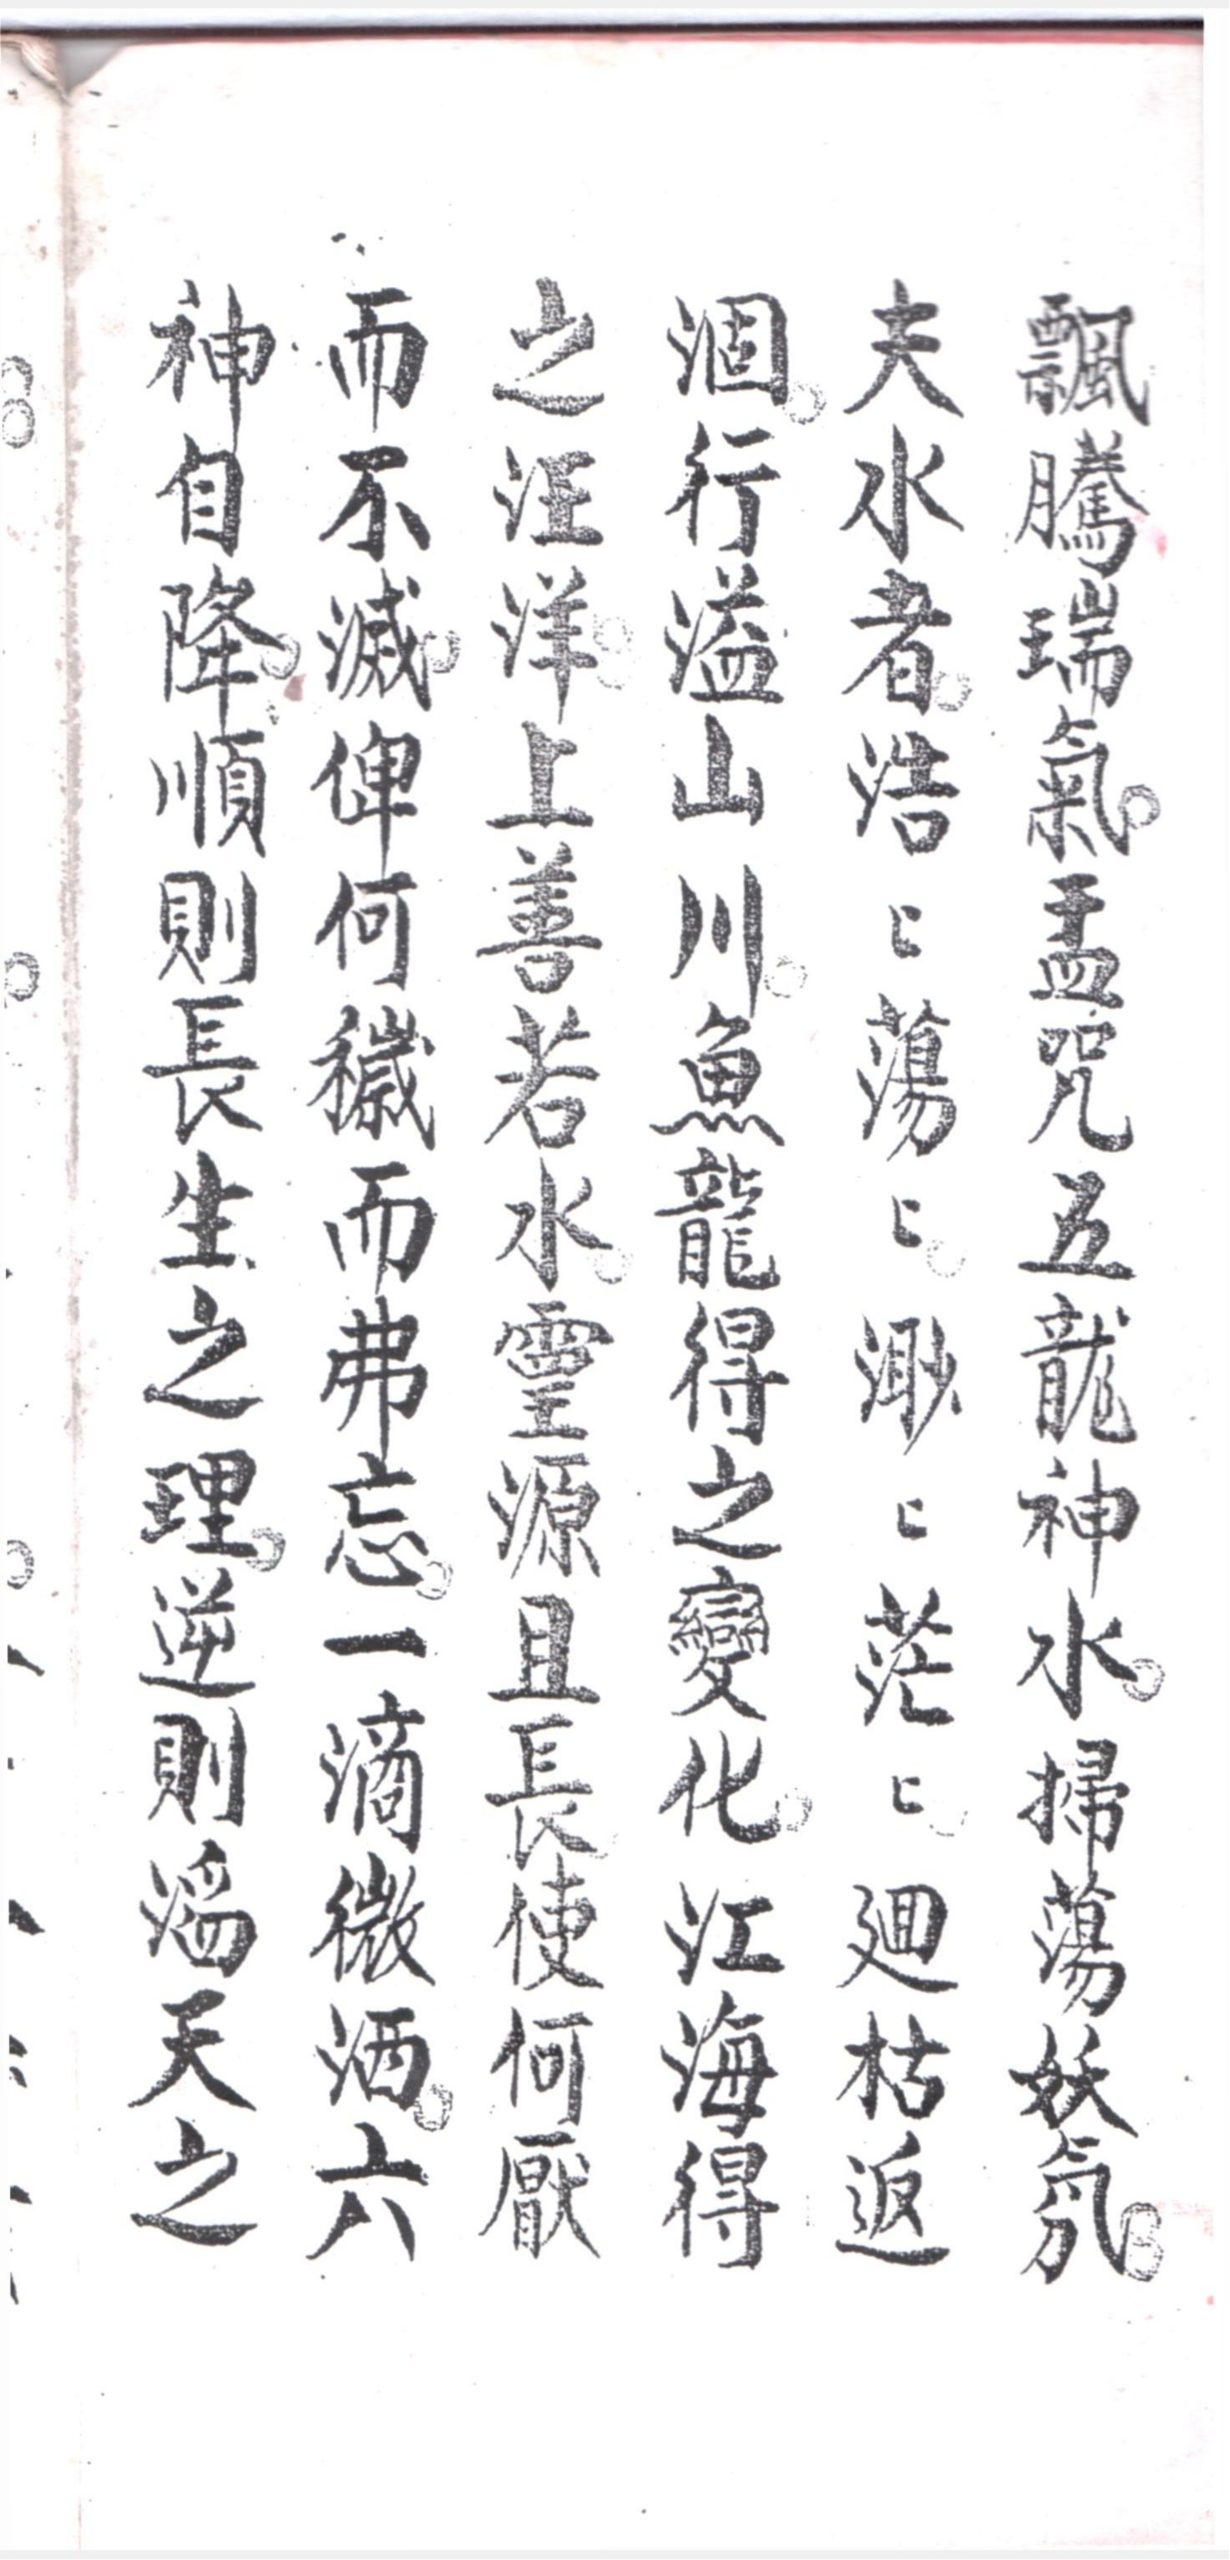 飄騰瑞氣。盂咒五龍神水。掃蕩妖氛。
夫水者。浩〻蕩〻。渺〻茫〻。廻枯返
涸。行溢山川。魚龍得之變化。江海得
之汪洋。上善若水。霊源且長。使何厭
而不滅。俾何穢而弗忘。一滴微洒。六
神自降。順則長生之理。逆則滔天之